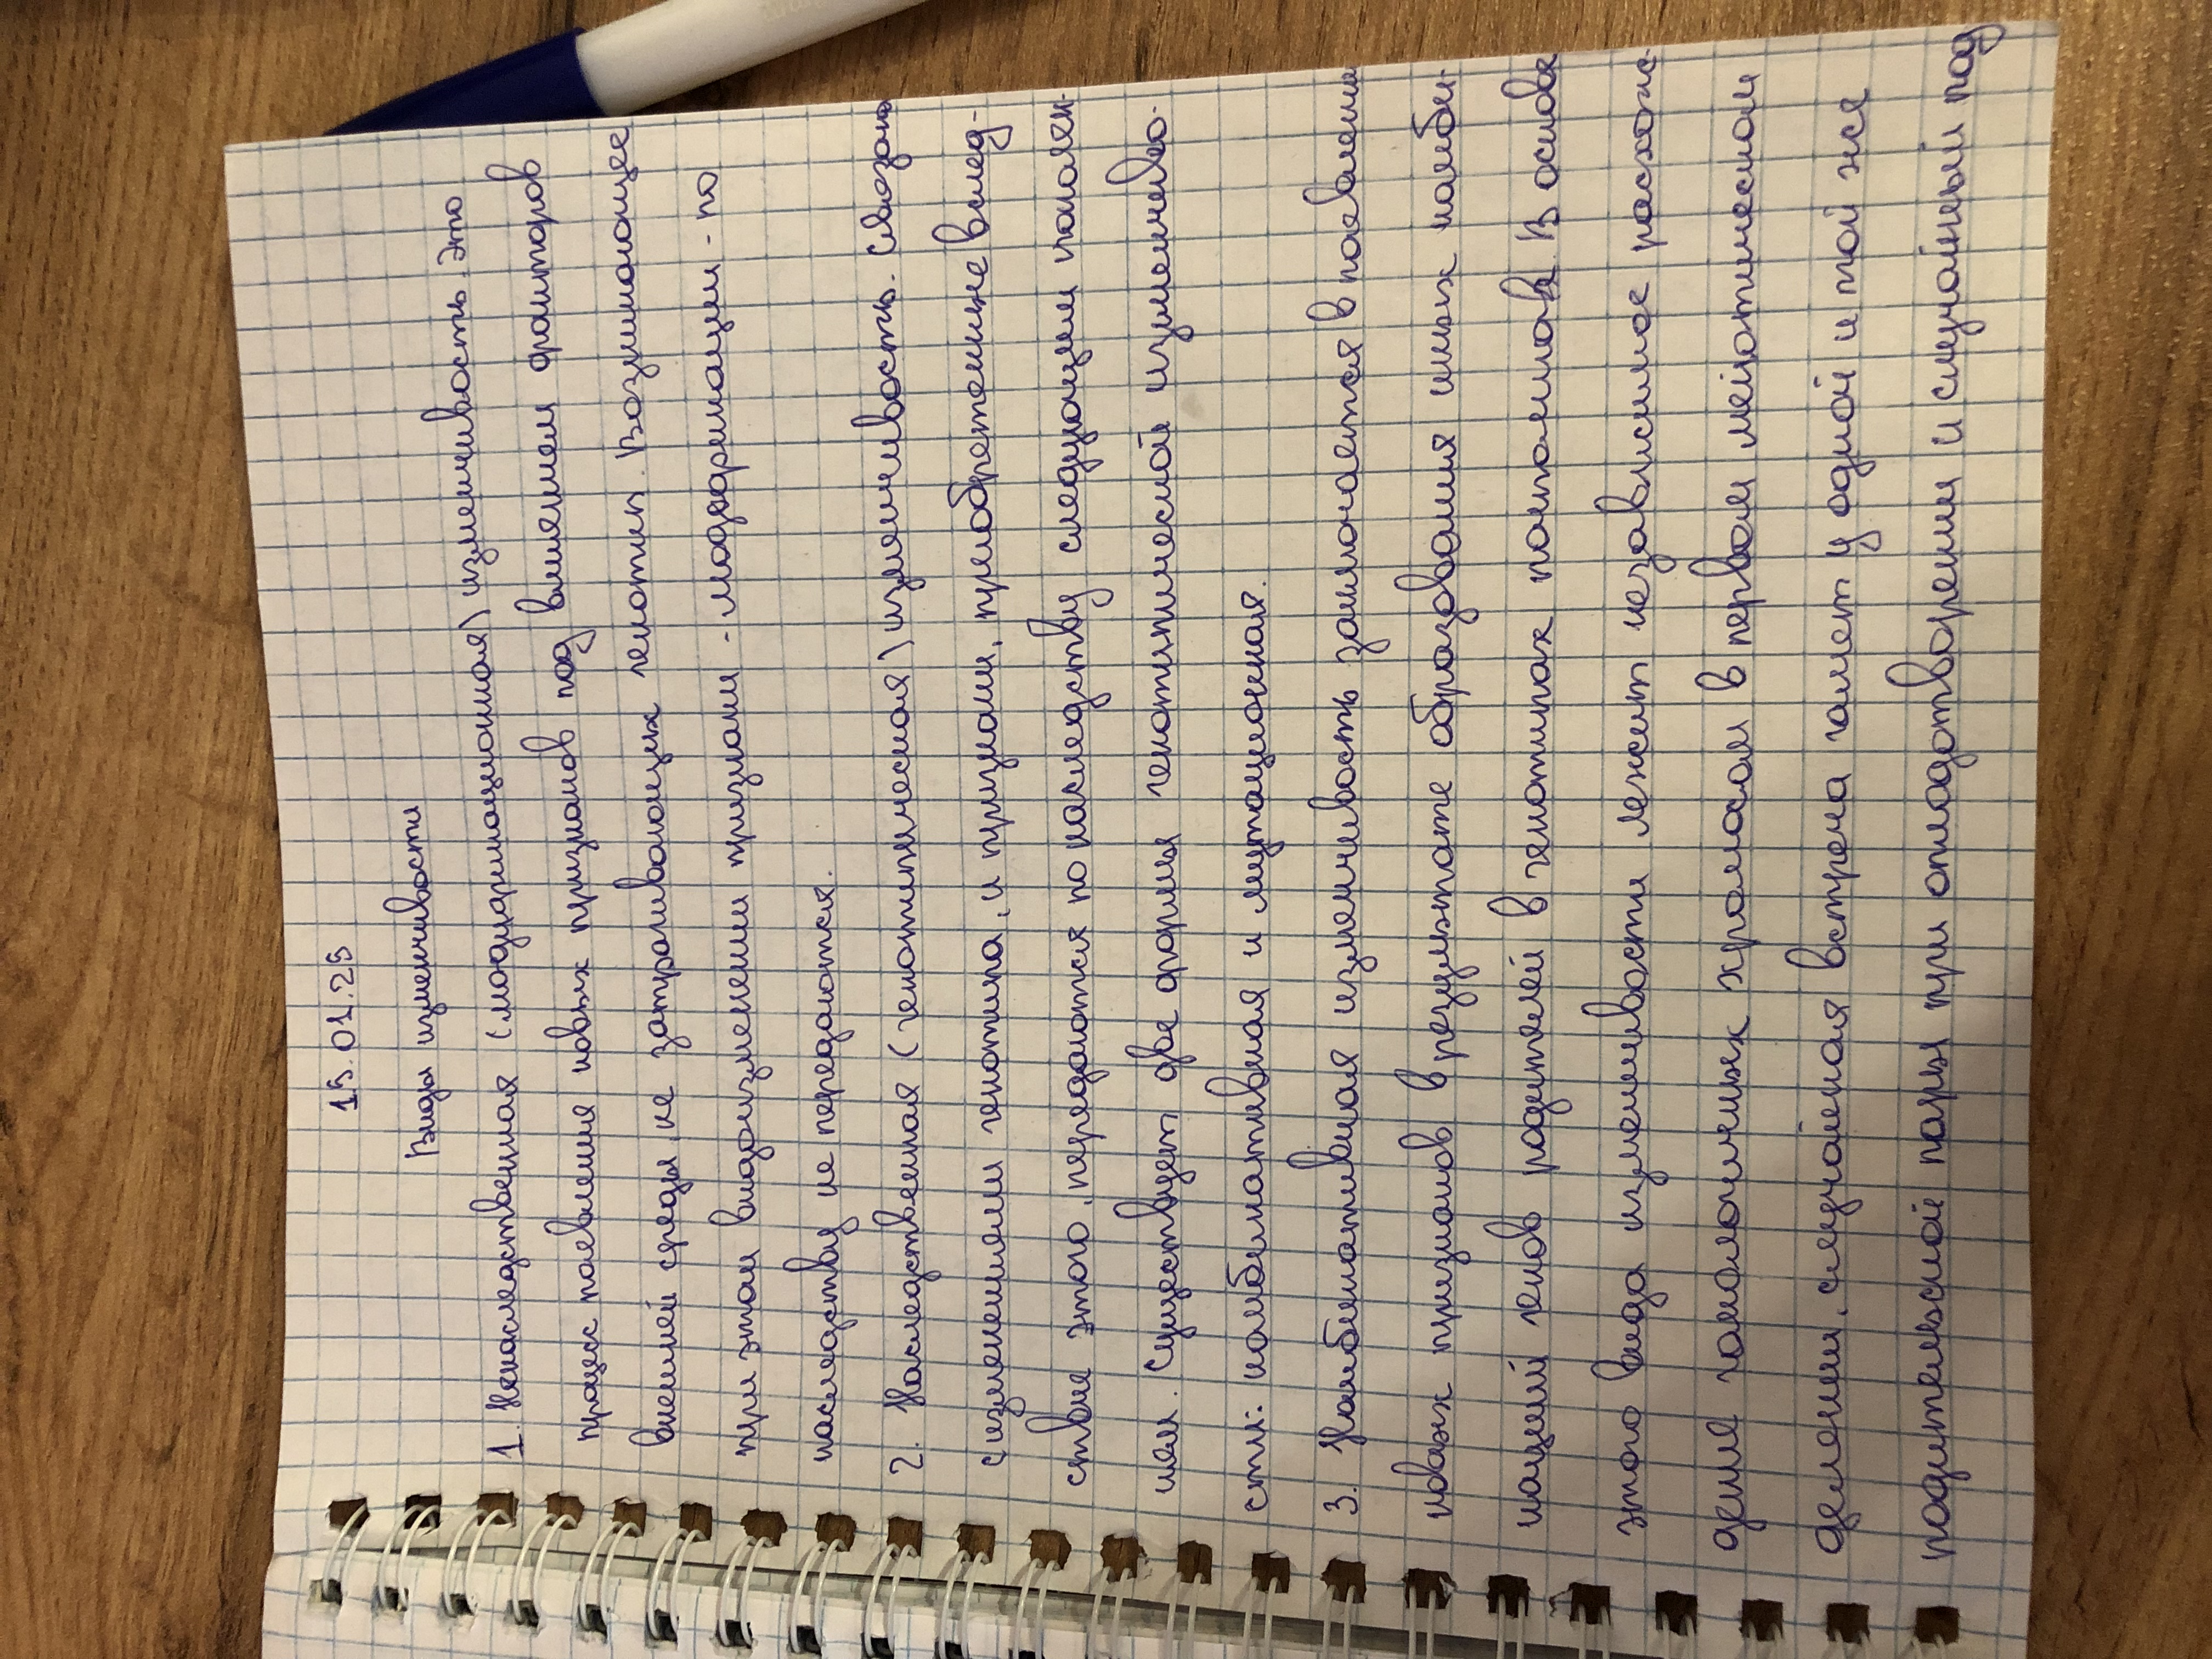 15.01.25
Виды изменчивости
1. Ненаследственная (модификационная) изменчивость. Это
процесс появление новых признаков под влиянием факторов
внешней среды, не затрагивающих генотип. Возникающее
при этом видоизменении признаки - модификации - по
наследству не передаются.
2. Наследственная (генотипическая) изменчивость. Связано
с изменениями генотипа, и признаки, приобретенные вслед-
ствие этого, передаются по наследству следующим поколен-
иям. Существует две формы генотипической изменчиво-
сти: комбинативная и мутационная.
3. Комбинативная изменчивость заключается в появлении
новых признаков в результате образования иных комби-
наций генов родителей в генотипах потомков. В основе
этого вида изменчивости лежит независимое расхож-
дение гомологичных хромосом в первом мейотическом
делении, случайная встреча гамет у одной и той же
родительской пары при оплодотворении и случайный под